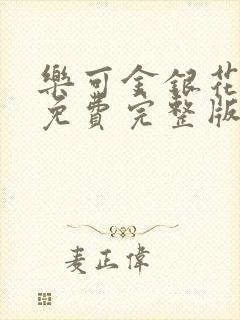 樂可金銀花
免費完整版
麦正偉